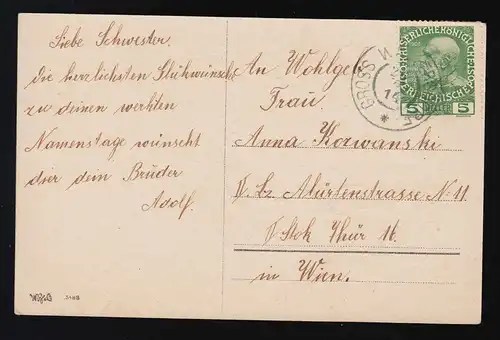 Liebe Schwester.
die herzlichsten Glükwunsche
zu deinen werhten
Namenstage wünscht
dier dein Brüder
Adolf.
An Wohlgeb
Frau
Anna Kozwanski
V. Bz. Alürtenstrasse N 11
V Stok Thür 16
in Wien.
KAISERLICHE KÖNIGLICHE
ÖSTERREICHISCHE POST
5 5
GROSS
3488